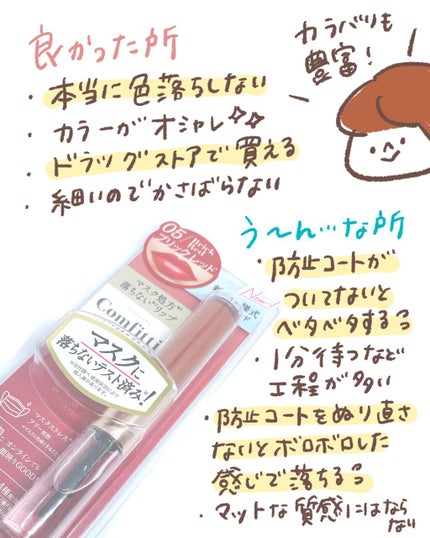 良かった所
・本当に色落ちしない
・カラーがオシャレ
・ドラッグストアで買える
・細いのでかさばらない
カラバリも
豊富！
う〜ん…な所
・防止コートが
ついてないと
ベタベタする
・1分待つなど
工程が多い
・防止コートをぬり直さ
ないとボロボロした
感じで落ちる
・マットな質感にはなら
ない
05/Brick
Red
ブリックレッド
New!
マスク処方
落ちないリップ
Comfiti
マスクに
落ちないテスト済み!
マスクストレス
フリー発想
オンラインでも
顔映りGOOD